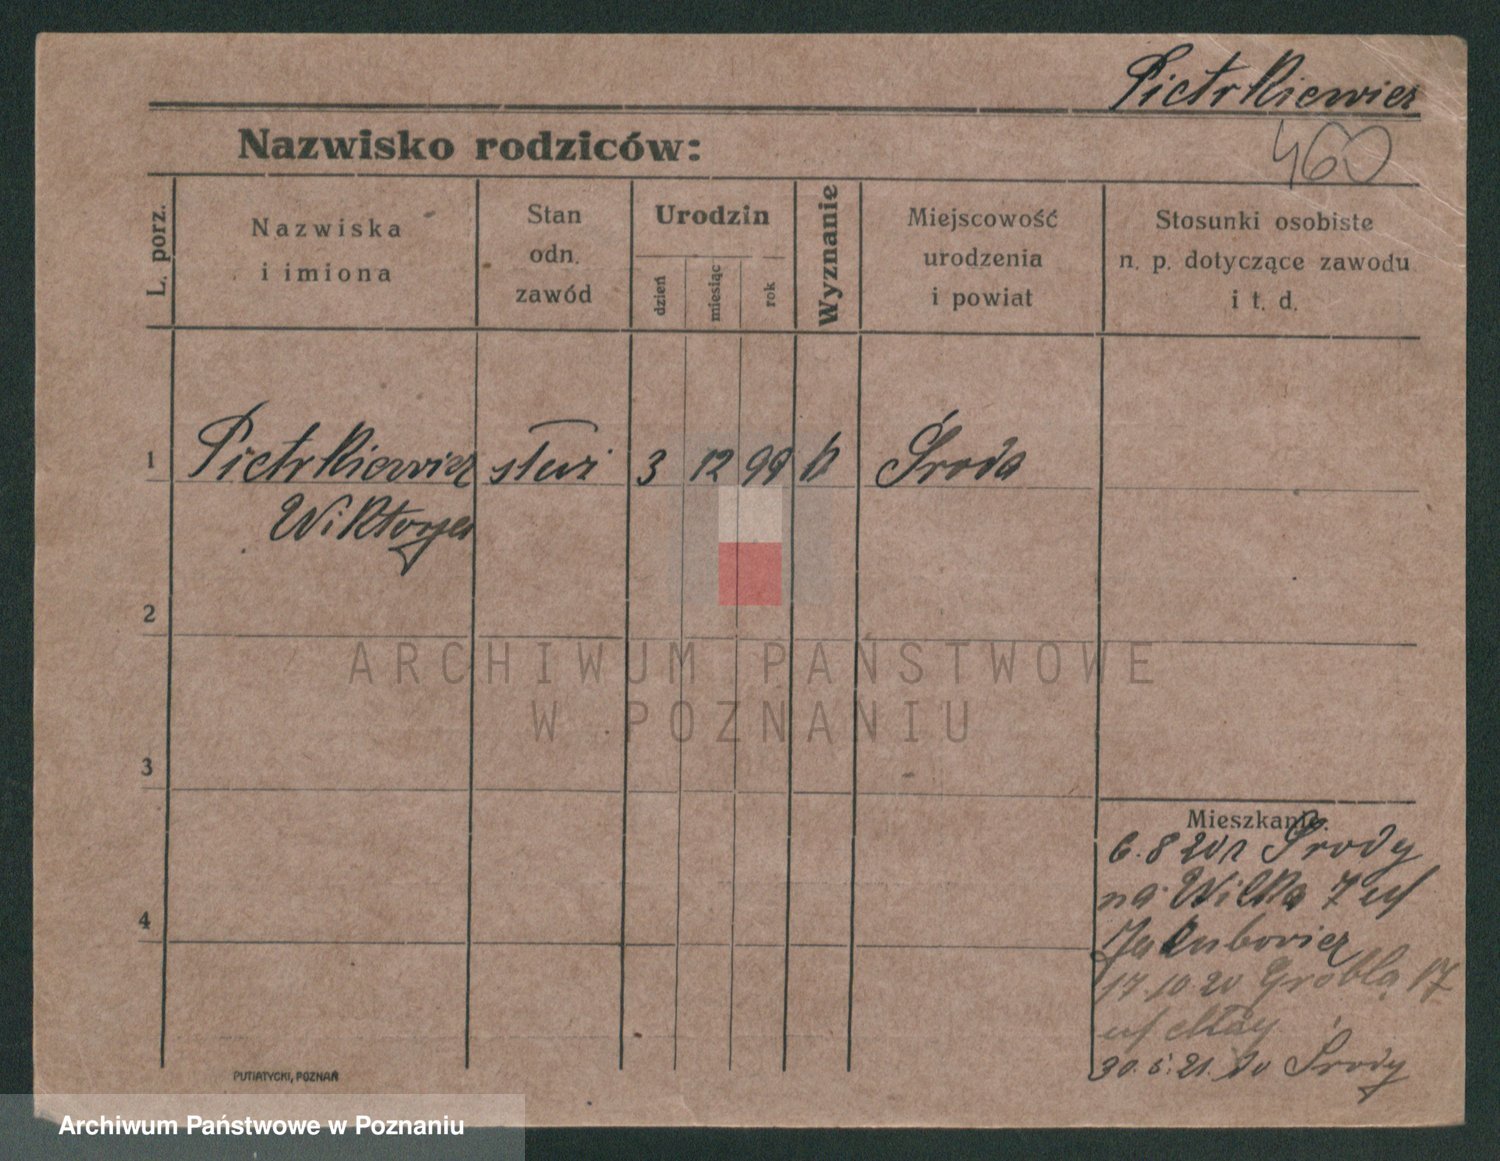 Pietrkiewicz
460
Nazwisko rodziców:
L. porz.
Nazwiska
i imiona
Stan
odn.
zawód
Urodzin
dzień
miesiąc
rok
Wyznanie
Miejscowość
urodzenia
i powiat
Stosunki osobiste
n. p. dotyczące zawodu
i t. d.
1 Pietrkiewicz służ 3 12 99 k Środa
Wiktorja
2
3
4
Mieszkanie:
6.8 20 z Środy
na Wilka 7 u/
Jakubowicz
17.10.20 Grobla 17
u/
30.5.21. do Środy
PUTIATYCKI, POZNAŃ
ARCHIWUM PAŃSTWOWE
W POZNANIU
Archiwum Państwowe w Poznaniu